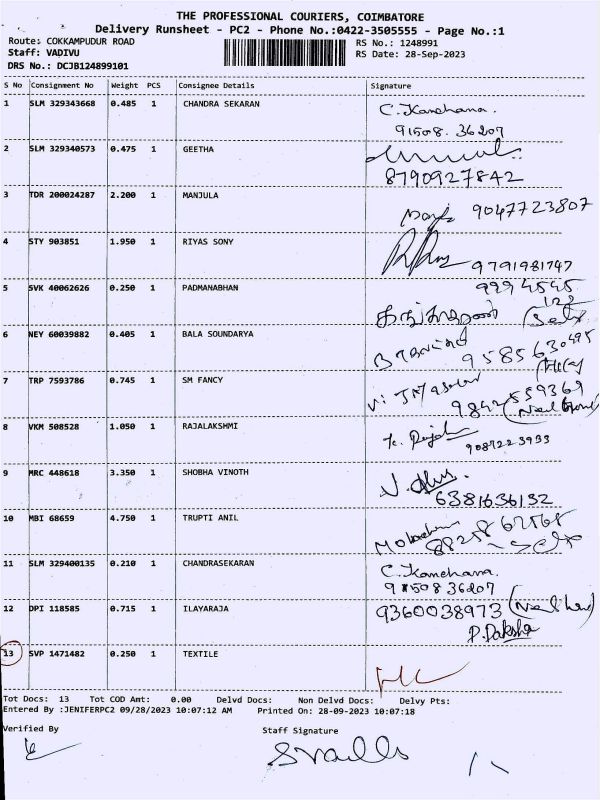 THE PROFESSIONAL COURIERS, COIMBATORE
Delivery Runsheet - PC2 - Phone No.:0422-3505555 - Page No.:1
Route: COKKAMPUDUR ROAD RS No.: 1248991
Staff: VADIVU RS Date: 28-Sep-2023
DRS No.: DCJB124899101
S No Consignment No Weight PCS Consignee Details Signature
1 SLM 329343668 0.485 1 CHANDRA SEKARAN C. Kanchana.
91508. 36207
2 SLM 329340573 0.475 1 GEETHA
8790927842
3 TDR 200024287 2.200 1 MANJULA
9047723807
4 STY 903851 1.950 1 RIYAS SONY
9791981747
5 SVK 40062626 0.250 1 PADMANABHAN 9994545
122
6 NEY 60039882 0.405 1 BALA SOUNDARYA
9585630495
7 TRP 7593786 0.745 1 SM FANCY
9842559369
8 VKM 508528 1.050 1 RAJALAKSHMI
9087223933
9 MRC 448618 3.350 1 SHOBHA VINOTH
6381636132
10 MBI 68659 4.750 1 TRUPTI ANIL
11 SLM 329400135 0.210 1 CHANDRASEKARAN C. Kanchana.
9150836207
12 DPI 118585 0.715 1 ILAYARAJA 9360038973
P. Daksha
13 SVP 1471482 0.250 1 TEXTILE
Tot Docs: 13 Tot COD Amt: 0.00 Delvd Docs: Non Delvd Docs: Delvy Pts:
Entered By :JENIFERPC2 09/28/2023 10:07:12 AM Printed On: 28-09-2023 10:07:18
Verified By Staff Signature